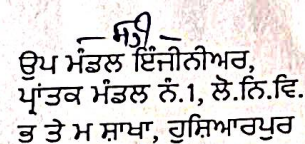 ਉਪ ਮੰਡਲ ਇੰਜੀਨੀਅਰ,
ਪ੍ਰਾਂਤਕ ਮੰਡਲ ਨੰ.1, ਲੋ.ਨਿ.ਵਿ.
ਭ ਤੇ ਮ ਸ਼ਾਖਾ, ਹੁਸ਼ਿਆਰਪੁਰ